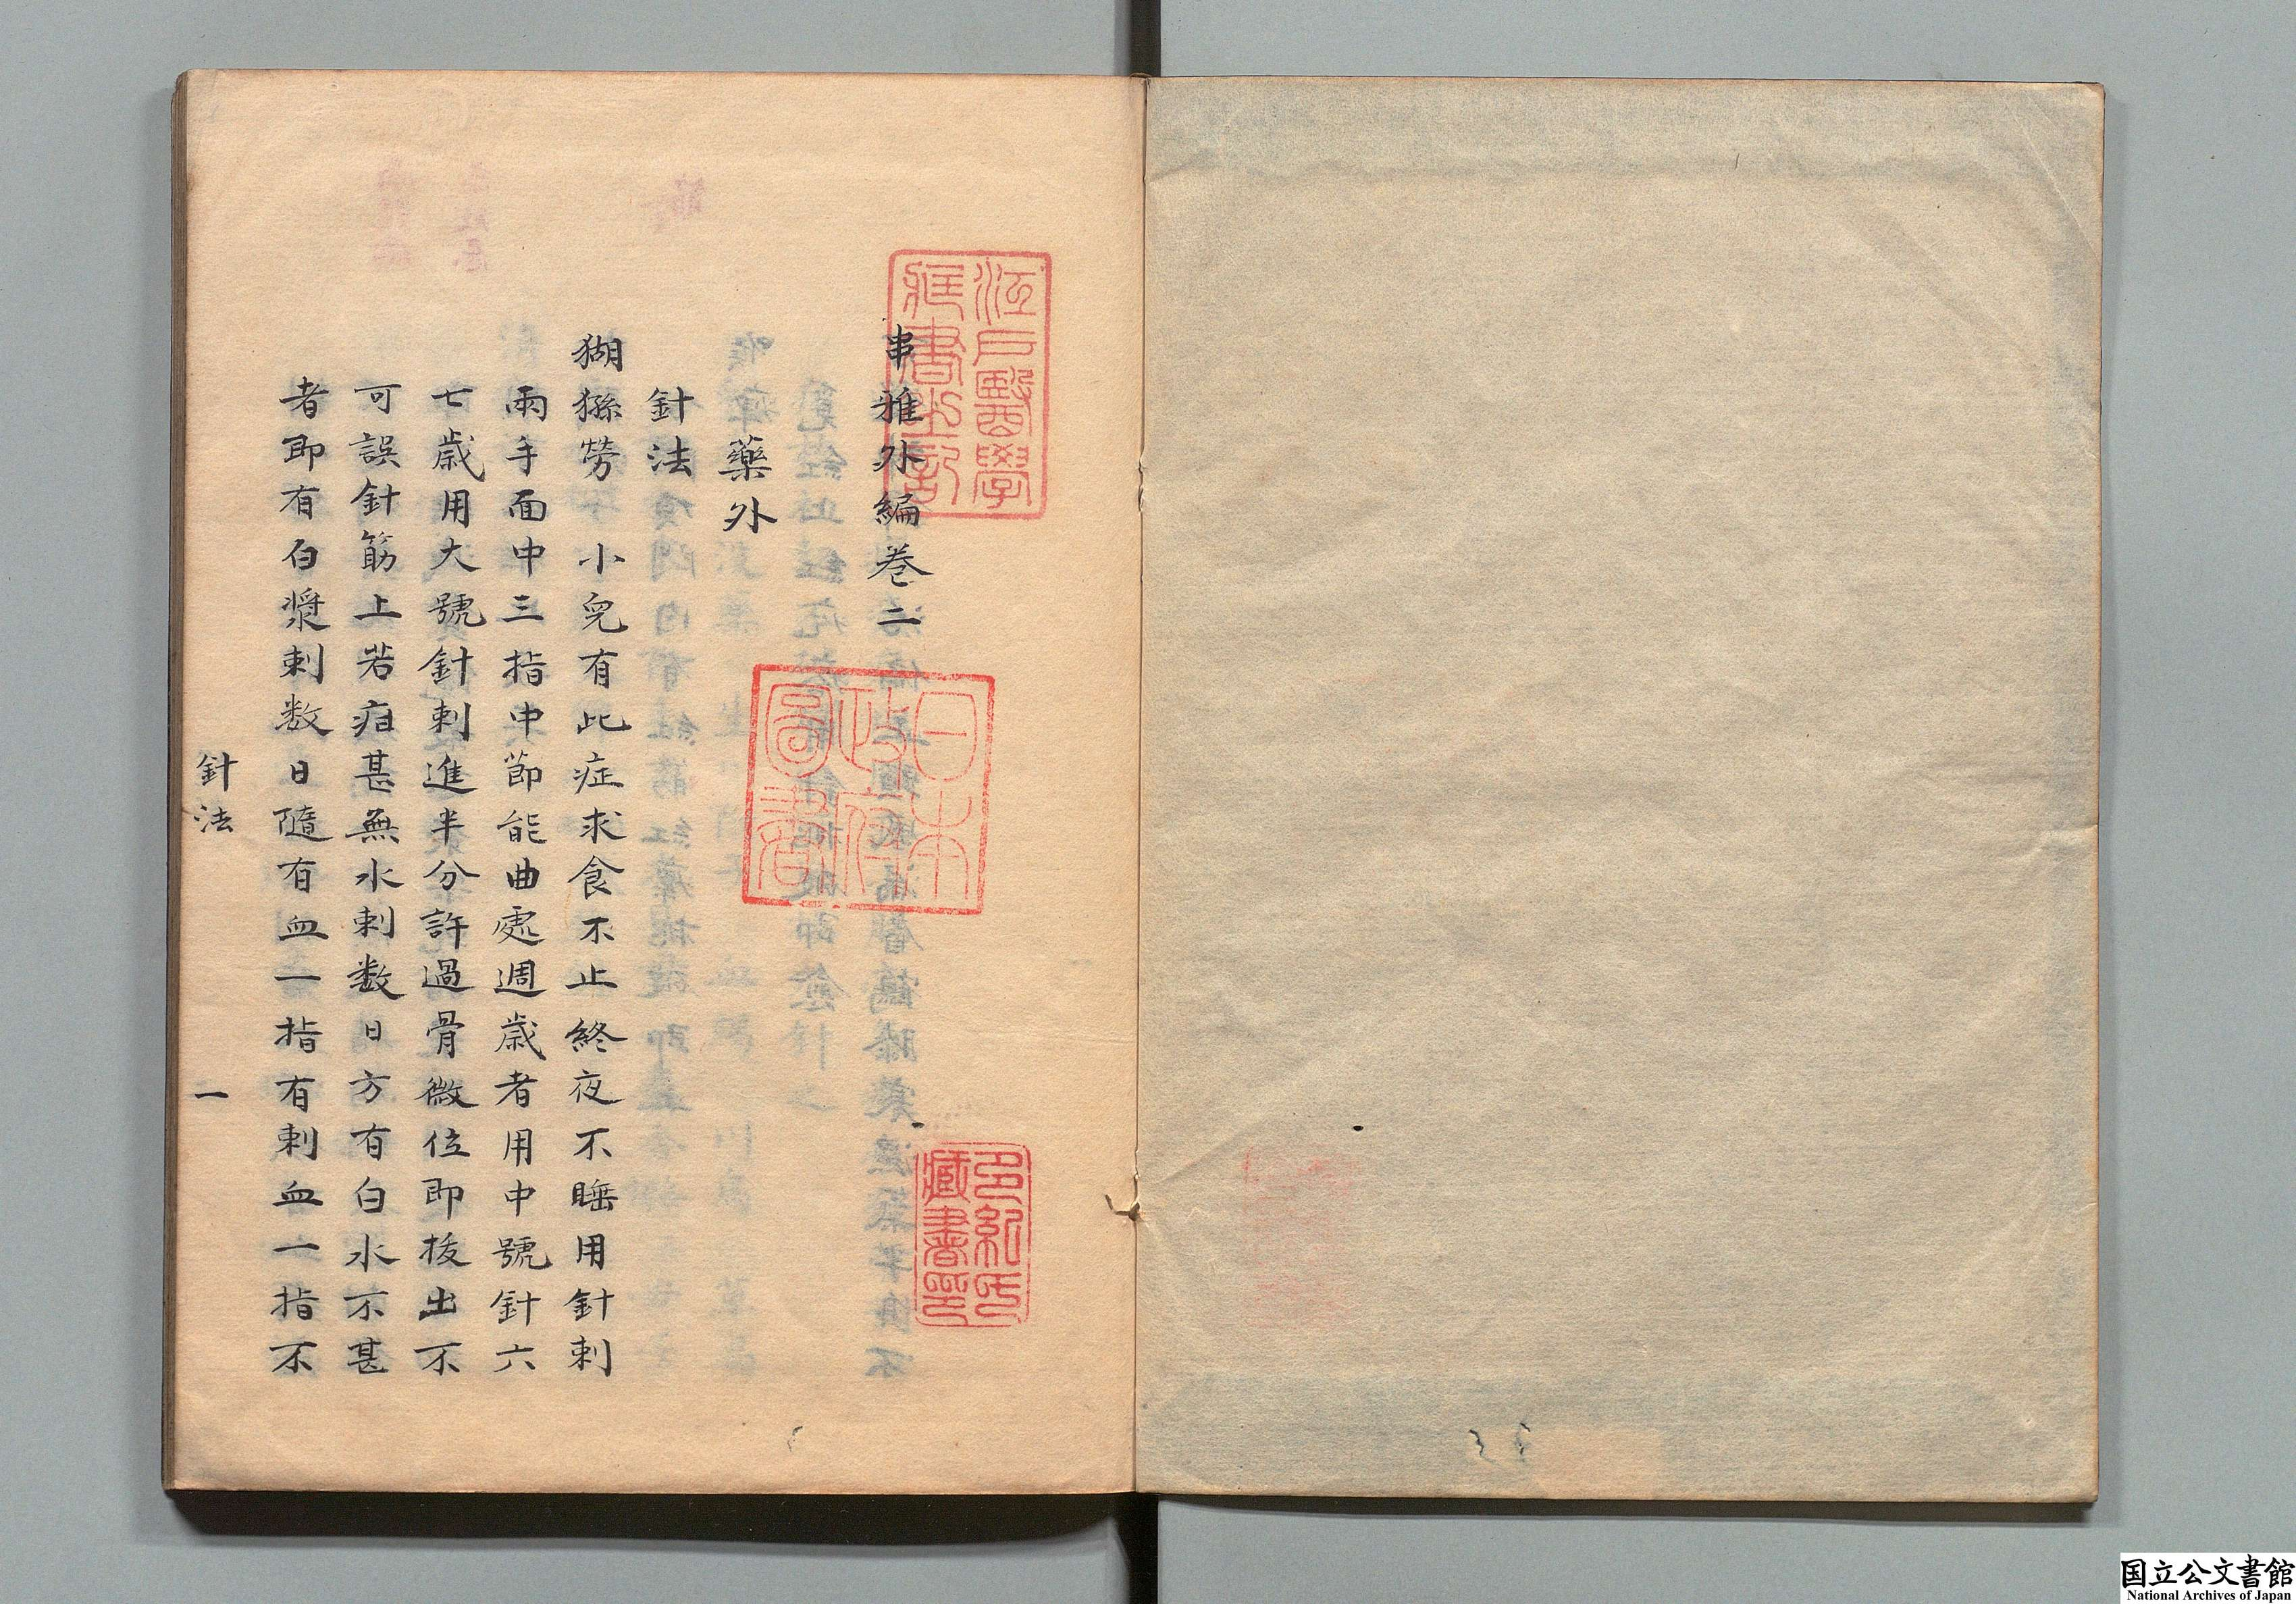 串雅外編卷二
藥外
針法
猢猻勞 小兒有此症求食不止終夜不睡用針刺
兩手面中三指中節能曲處週歲者用中號針六
七歲用大號針刺進半分許過骨微位即拔出不
可誤針筋上若疳甚無水刺数日方有白水不甚
者即有白漿刺数日隨有血一指有刺血一指不
針法
一
江戶醫學
藏書之記
日本
政府
圖書
多紀氏
藏書印
国立公文書館
National Archives of Japan